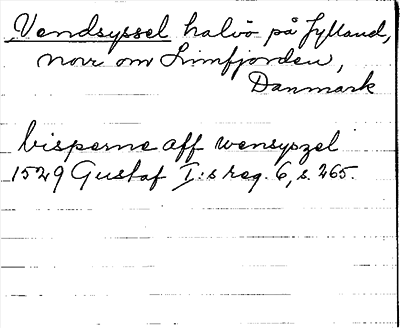 Vendsyssel halvö på Jylland,
norr om Limfjorden,
Danmark
bisperne aff wensyszel
1529 Gustaf I:s reg. 6, s. 265.